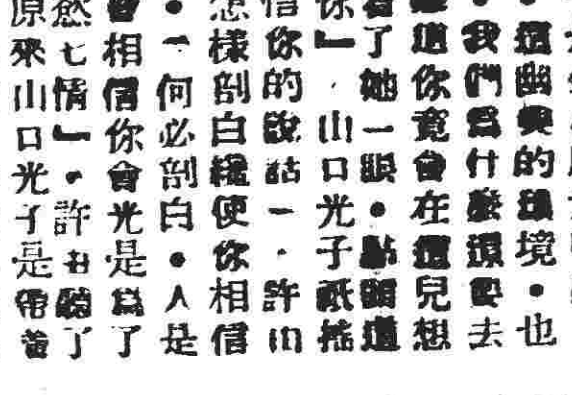 ・這幽的環境・也
・我們爲什麼還要去
道你竟會在這兒想
看了她一眼・點頭道
你』・山口光子祇搖
信你的說話』・許
怎樣剖白縱使你相信
・『何必剖白・人是
會相信你會光是爲了
慾七情』・許聽了
原來山口光子是帶着